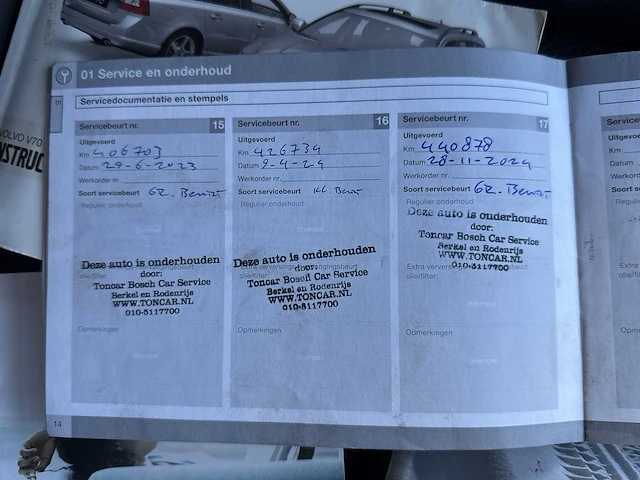 VOLVO V70
INSTRUC
01 Service en onderhoud
01
Servicedocumentatie en stempels
Servicebeurt nr. 15
Uitgevoerd
Km 406703
Datum 29-6-2023
Werkorder nr.
Soort servicebeurt Gr. Beurt
Regulier onderhoud
Stempel
Deze auto is onderhouden
door:
Toncar Bosch Car Service
Berkel en Rodenrijs
WWW.TONCAR.NL
010-5117700
olie/filter:
Opmerkingen
Stempel
Servicebeurt nr. 16
Uitgevoerd
Km 426734
Datum 9-4-24
Werkorder nr.
Soort servicebeurt Kl. Beurt
Regulier onderhoud
Stempel
Deze auto is onderhouden
door:
Toncar Bosch Car Service
Berkel en Rodenrijs
WWW.TONCAR.NL
010-5117700
olie/filter:
Opmerkingen
Stempel
Servicebeurt nr. 17
Uitgevoerd
Km 440878
Datum 28-11-2024
Werkorder nr.
Soort servicebeurt Gr. Beurt
Regulier onderhoud
Deze auto is onderhouden
door:
Toncar Bosch Car Service
Berkel en Rodenrijs
WWW.TONCAR.NL
010-5117700
olie/filter:
Opmerkingen
Stempel
14